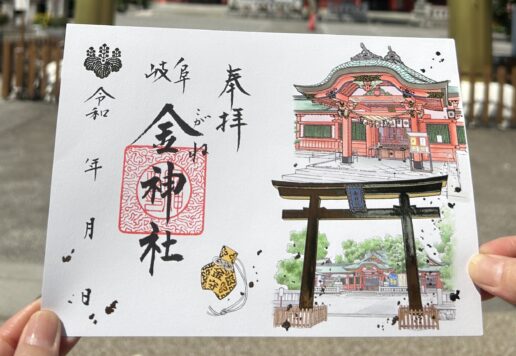 奉拝
岐阜
金神社
こがね
令和 年 月 日